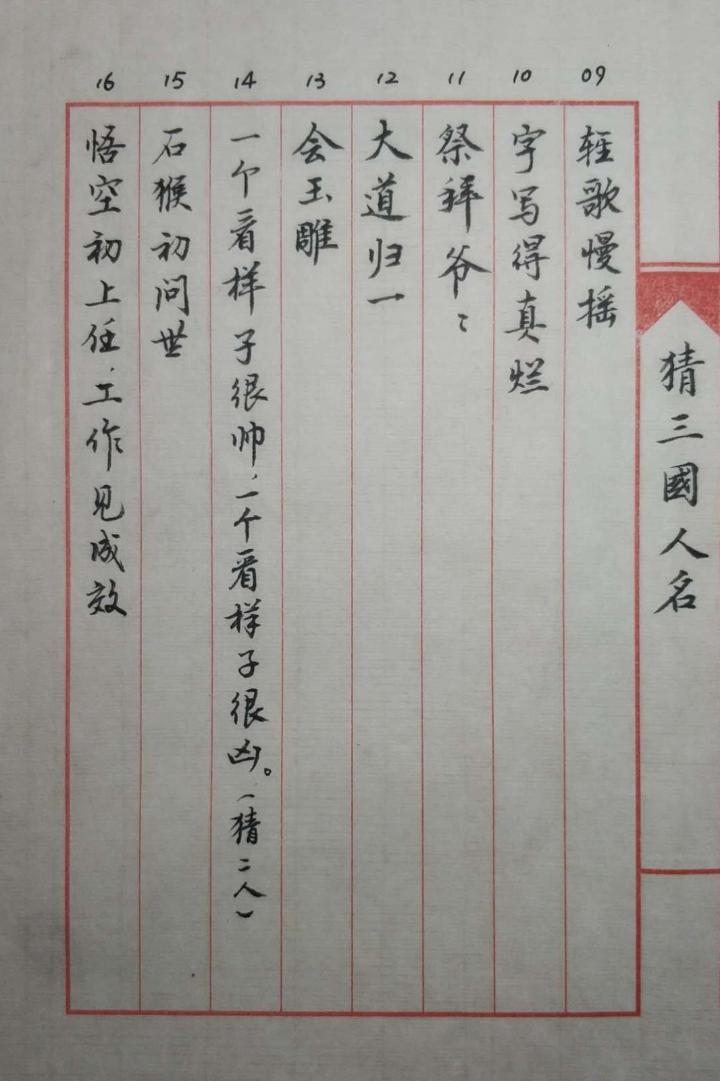 猜三國人名
09
轻歌慢摇
10
字写得真烂
11
祭拜爷〻
12
大道归一
13
会玉雕
14
一个看样子很帅，一个看样子很凶。（猜二人）
15
石猴初问世
16
悟空初上任，工作见成效